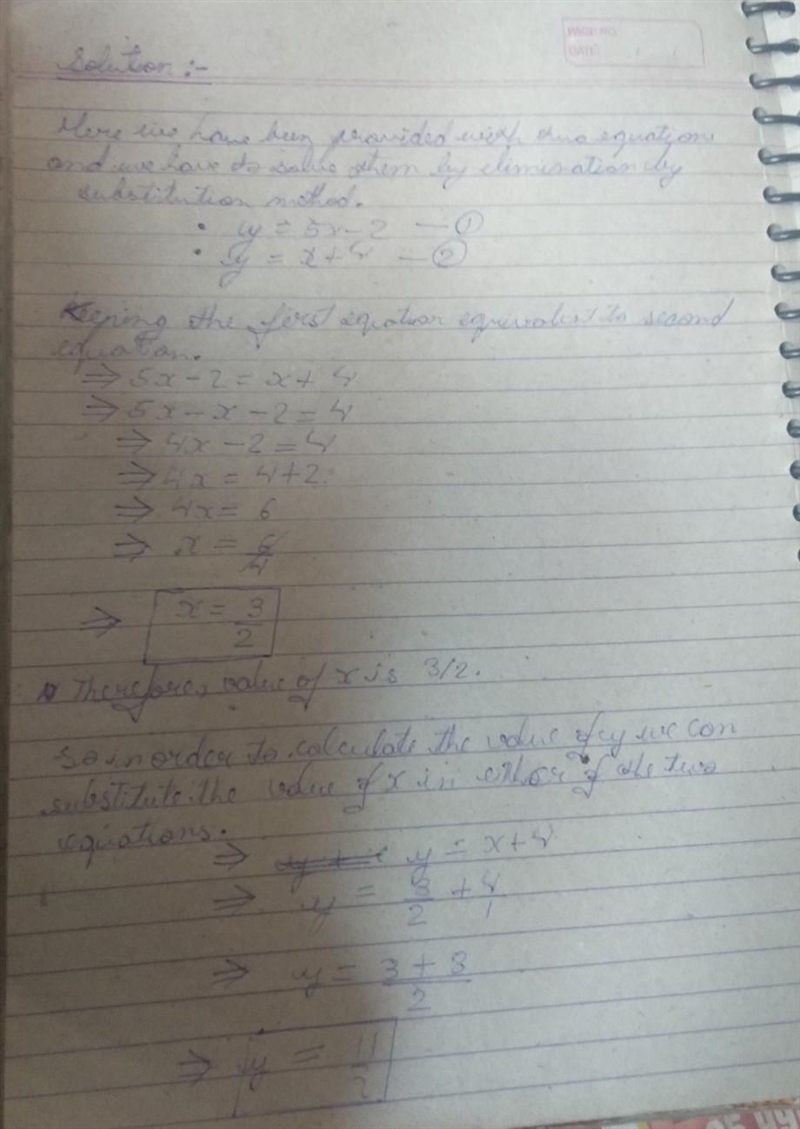 PAGE NO.
DATE: / /
Solution :-
Here we have been provided with two equations
and we have to solve them by elimination by
substitution method.
• y = 5x - 2 — ①
• y = x + 4 — ②
Keeping the first equation equivalent to second
equation.
⇒ 5x - 2 = x + 4
⇒ 5x - x - 2 = 4
⇒ 4x - 2 = 4
⇒ 4x = 4 + 2
⇒ 4x = 6
⇒ x = 6/4
⇒ x = 3/2
Therefore, value of x is 3/2.
So in order to calculate the value of y we can
substitute the value of x in either of the two
equations.
⇒ y = x + 4
⇒ y = 3/2 + 4/1
⇒ y = 3 + 8/2
⇒ y = 11/2